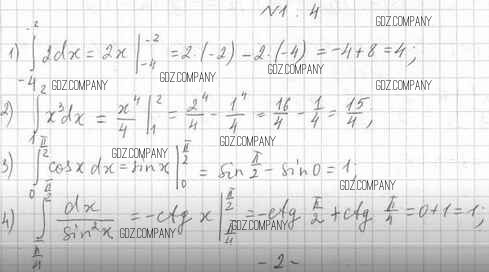 N1.4
GDZ.COMPANY
1) ∫_{-4}^{-2} 2dx = 2x |_{-4}^{-2} = 2·(-2) - 2·(-4) = -4+8 = 4;
GDZ.COMPANY GDZ.COMPANY GDZ.COMPANY
GDZ.COMPANY GDZ.COMPANY
2) ∫_{1}^{2} x³dx = x⁴/4 |_{1}^{2} = 2⁴/4 - 1⁴/4 = 16/4 - 1/4 = 15/4;
GDZ.COMPANY GDZ.COMPANY
3) ∫_{0}^{π/2} cosx dx = sinx |_{0}^{π/2} = sin π/2 - sin0 = 1;
GDZ.COMPANY
4) ∫_{π/4}^{π/2} dx/sin²x = -ctg x |_{π/4}^{π/2} = -ctg π/2 + ctg π/4 = 0+1 = 1;
GDZ.COMPANY GDZ.COMPANY GDZ.COMPANY
-2-